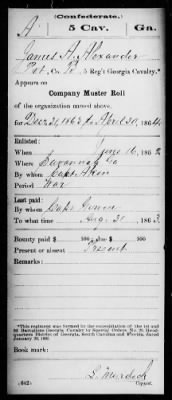 (Confederate.)
A | 5 Cav. | Ga.
James A. Alexander
Pvt., Co. , 5 Reg't Georgia Cavalry.*
Appears on
Company Muster Roll
of the organization named above,
for Dec. 31, 1863 to April 30, 1864
Enlisted:
When June 16, 186
Where Savannah Ga
By whom Capt.
Period War
Last paid:
By whom Capt.
To what time Aug. 31, 1863.
Bounty paid $ 100; due $ 100
Present or absent Present
Remarks:
*This regiment was formed by the consolidation of the 1st and
2d Battalions Georgia Cavalry by Special Orders, No. 20, Head-
quarters District of Georgia, South Carolina and Florida, dated
January 20, 1863.
Book mark:
S. Murdoch
(642) Copyist.